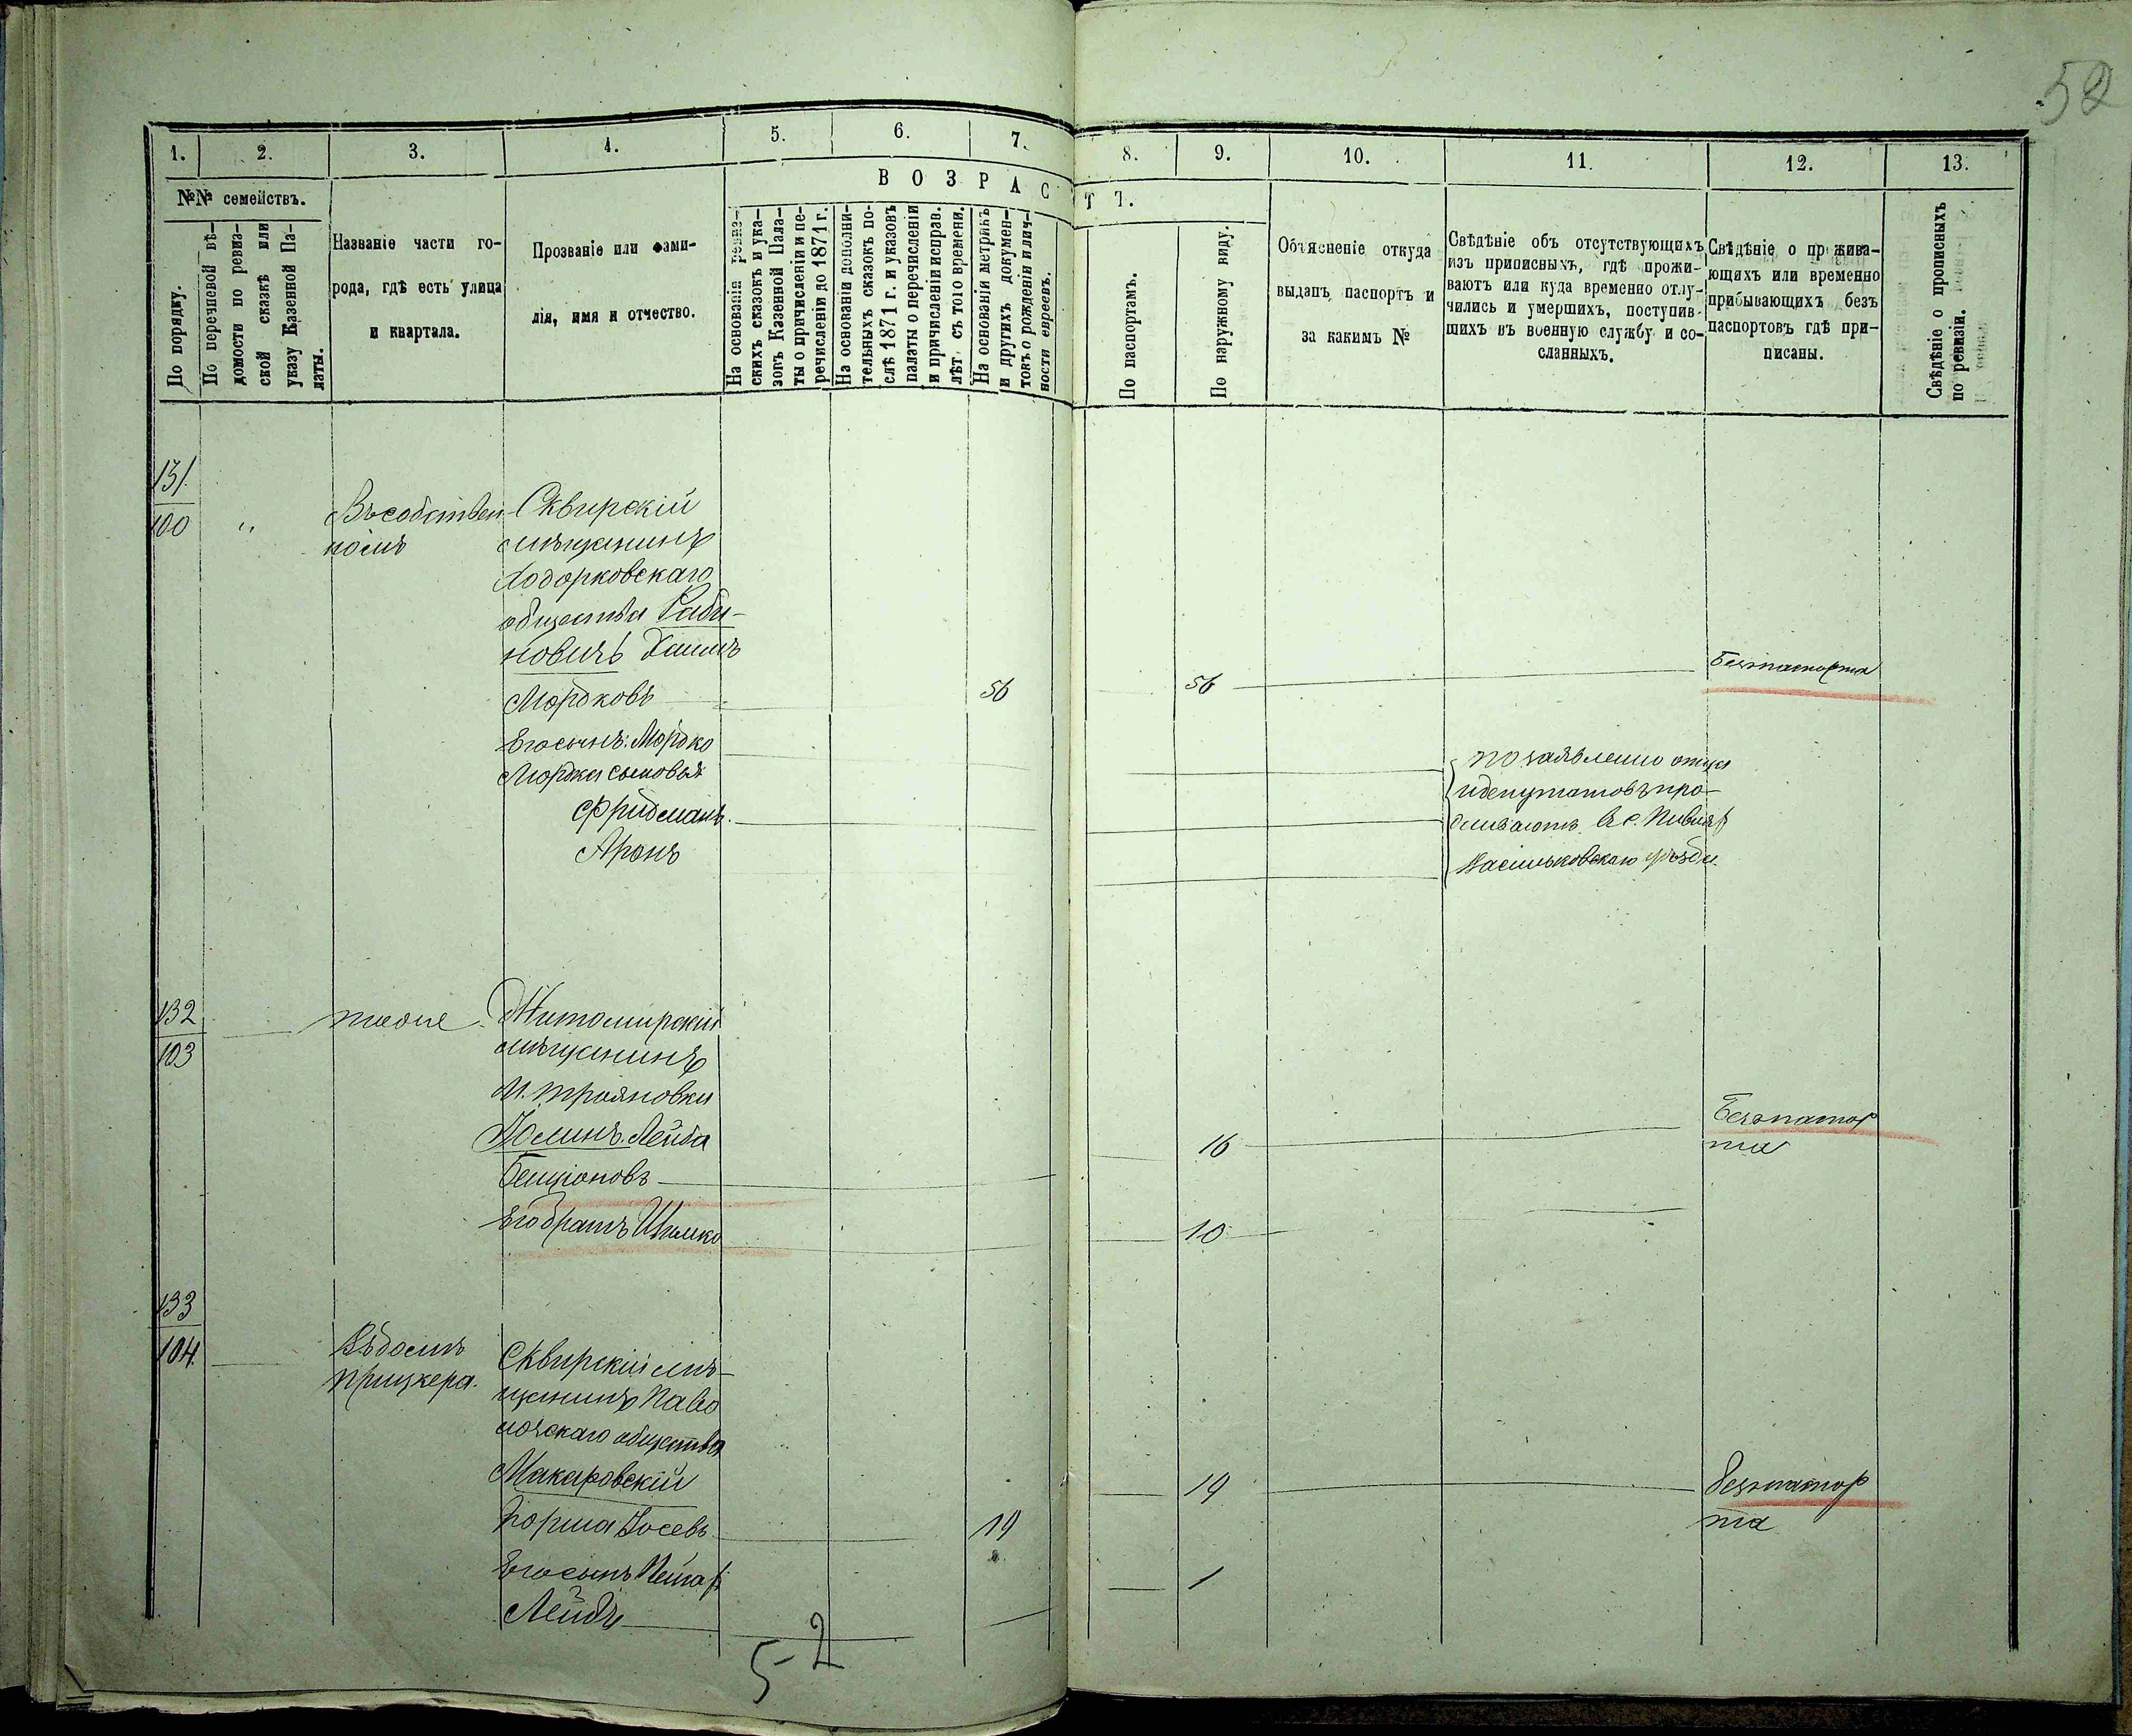 52
1.
2.
3.
4.
5.
6.
7.
8.
9.
10.
11.
12.
13.
№№ семействъ.
ВОЗРАСТЪ.
По порядку.
По перечневой вѣ-
домости по ревиз-
ской сказкѣ или
указу Казенной Па-
латы.
Названіе части го-
рода, гдѣ есть улица
и квартала.
Прозваніе или фами-
лія, имя и отчество.
На основаніи ревиз-
скихъ сказокъ и ука-
зовъ Казенной Пала-
ты о причисленіи и пе-
речисленіи до 1871 г.
На основаніи дополни-
тельныхъ сказокъ по-
слѣ 1871 г. и указовъ
палаты о перечисленіи
и причисленіи исправ.
лѣт. съ того времени.
На основаніи метрикъ
и другихъ докумен-
товъ о рожденіи и лич-
ности евреевъ.
По паспортамъ.
По наружному виду.
Объясненіе откуда
выданъ паспортъ и
за какимъ №
Свѣдѣніе объ отсутствующихъ
изъ приписныхъ, гдѣ прожи-
ваютъ или куда временно отлу-
чились и умершихъ, поступив-
шихъ въ военную службу и со-
сланныхъ.
Свѣдѣніе о прожива-
ющихъ или временно
прибывающихъ безъ
паспортовъ гдѣ при-
писаны.
Свѣдѣніе о прописныхъ
по ревизіи.
131
100
"
Въ собствен
номъ
Сквирскій
мѣщанинъ
Ходорковскаго
общества Раби-
новичъ Хаимъ
Мордковъ
56
56
Безпаспорта
Его сынъ: Мордко
Мордка сыновья
Фридманъ.
Аронъ
по заявленію отца
и депутатовъ про-
живаютъ въ с.
Васильковскаго уѣзда.
132
103
тоже
Житомирскій
мѣщанинъ
М. Трояновки
Лейба
Бенціоновъ
16
Безпаспор
та
Его братъ Шлемко
10
133
104.
Въ домѣ
Прицкера.
Сквирскій мѣ-
щанинъ Паво
лочскаго общества
Макаровскій
Іосевъ
19
19
безпаспор
та
Его сынъ
Лейбъ
1
52